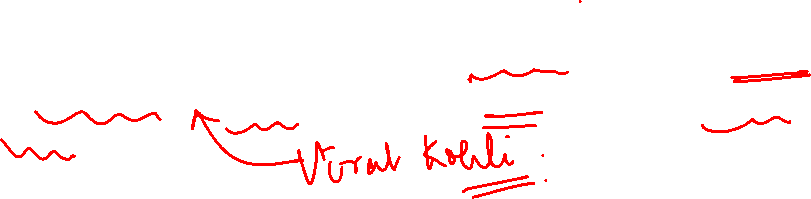 Virat Kohli.